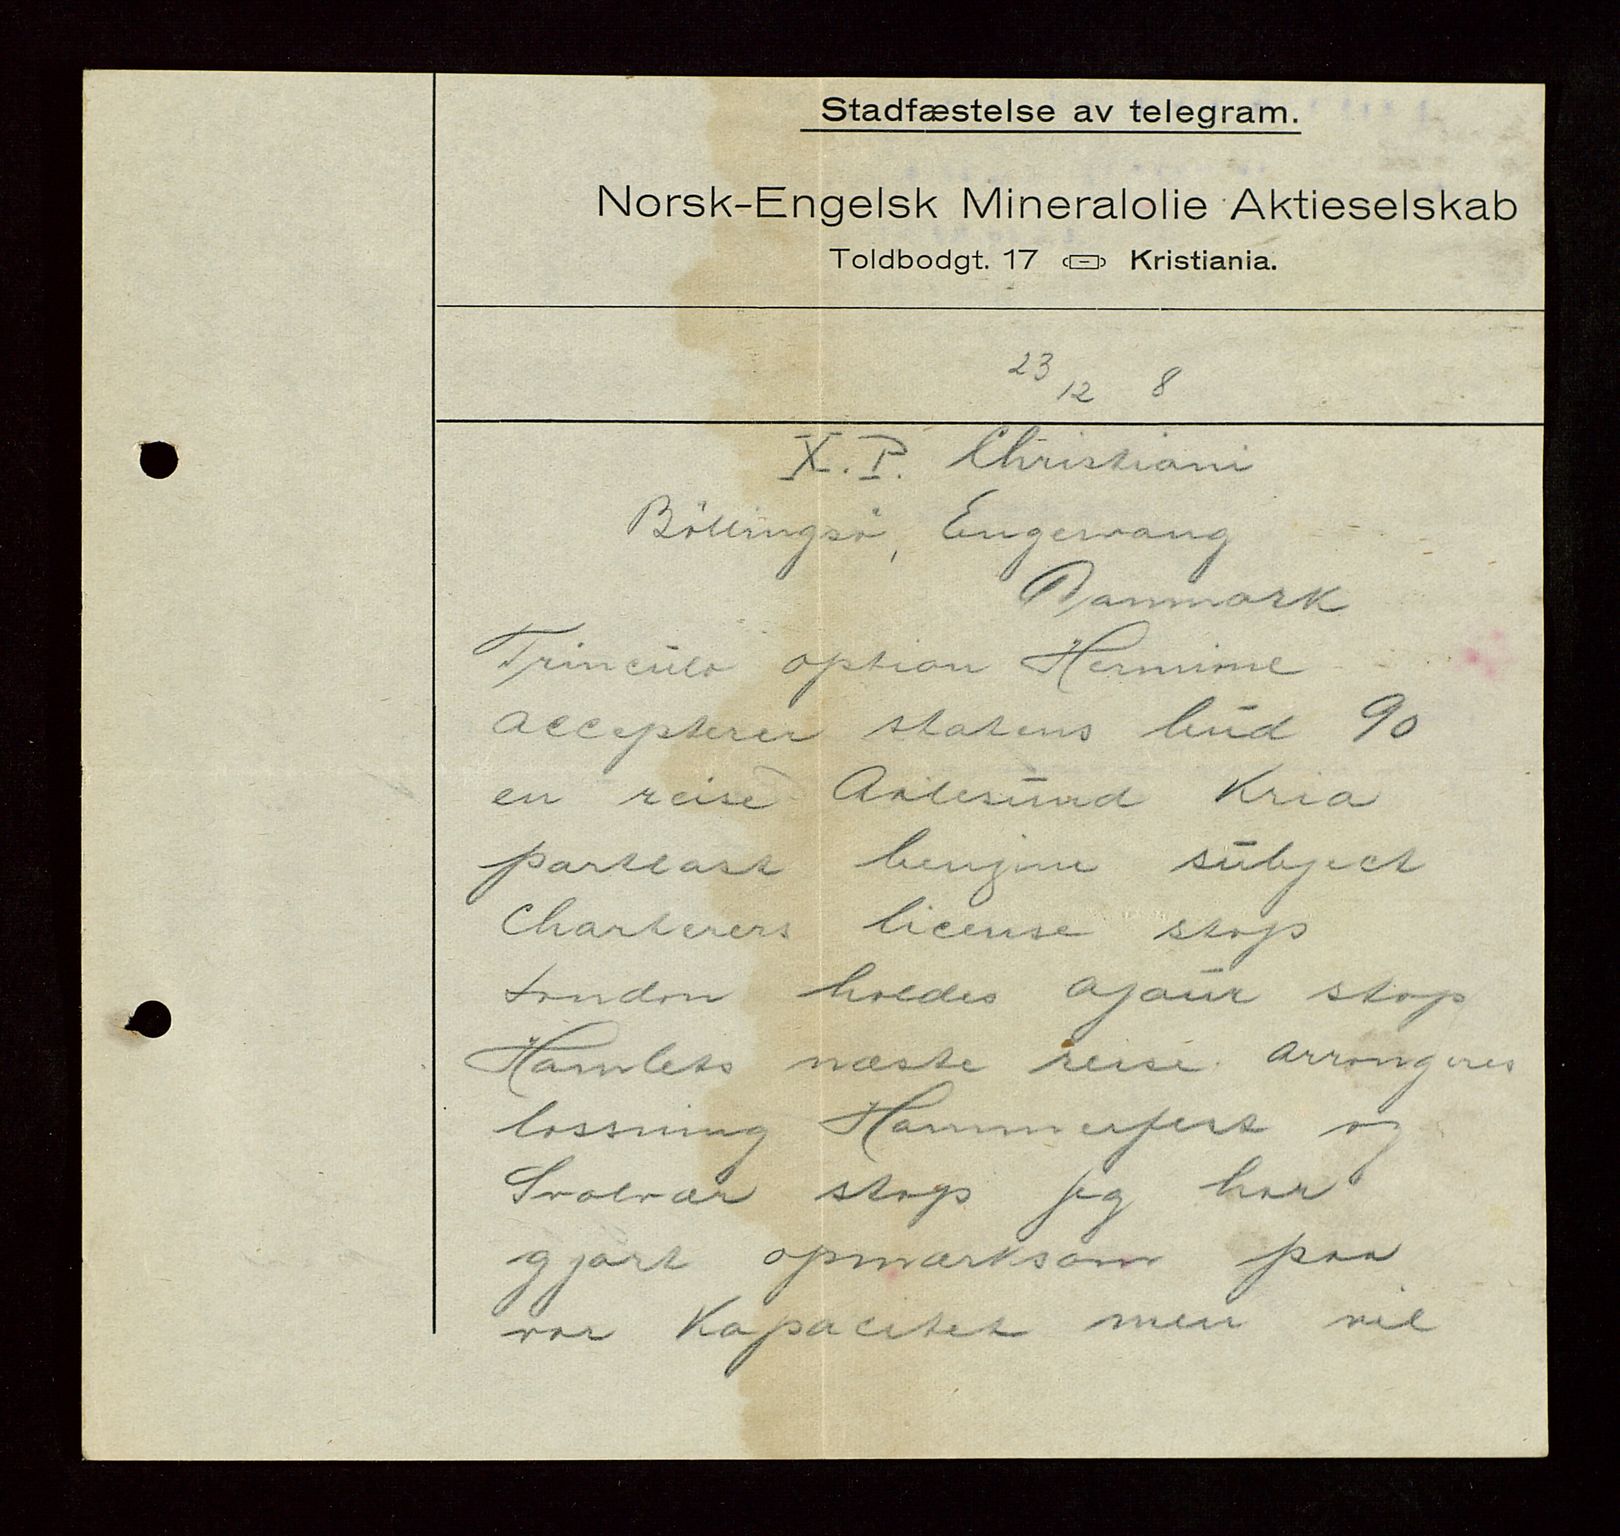 Stadfæstelse av telegram.
Norsk-Engelsk Mineralolie Aktieselskab
Toldbodgt. 17 Kristiania.
23/12 8
X.P. Christiani
Böllingsö, Engesvang
Danmark
Trinculo option Hermine
accepterer statens bud 90
en reise Aalesund Kria
partlast benzine subject
Charterers license stop
London holdes ajour stop
Hamlets næste reise arrangeres
lossning Hammerfest og
Svolvær stop jeg har
gjort opmerksom paa
vor Kapacitet men vil